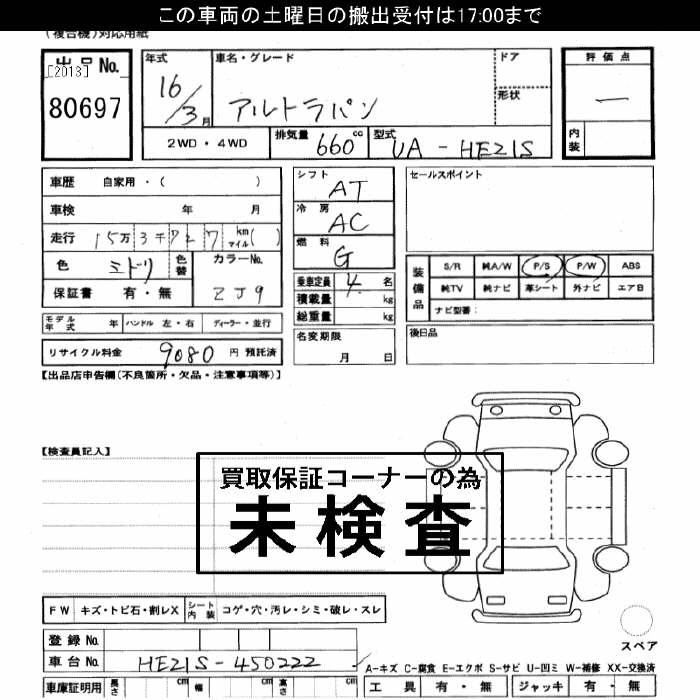 この車両の土曜日の搬出受付は17:00まで
(複合機)対応用紙
出品No. [2013] 80697
年式 16/3月
車名・グレード アルトラパン
ドア
形状
評価点 —
内装
2WD・4WD 排気量 660cc 型式 UA-HE21S
車歴 自家用・( )
車検 年 月
走行 15万3千727 km マイル( )
色 ミドリ 色替 カラーNo. ZJ9
保証書 有・無
シフト AT
冷房 AC
燃料 G
乗車定員 4名
積載量 kg
総重量 kg
セールスポイント
装備品 S/R 純A/W P/S P/W ABS
純TV 純ナビ 革シート 外ナビ エアB
ナビ型番:
モデル年式 年 ハンドル 左・右 ディーラー・並行
リサイクル料金 9080 円 預託済
名変期限 月 日
後日品
【出品店申告欄(不良箇所・欠品・注意事項等)】
【検査員記入】
買取保証コーナーの為
未検査
FW キズ・トビ石・割レX シート内装 コゲ・穴・汚レ・シミ・破レ・スレ
登録No.
車台No. HE21S-450222
スペア
A-キズ C-腐食 E-エクボ S-サビ U-凹ミ W-補修 XX-交換済
車庫証明用 長さ cm 幅 cm 高さ cm
工具 有・無 ジャッキ 有・無